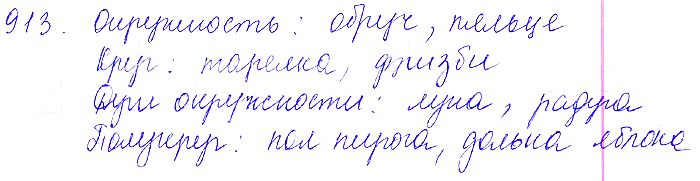 913. Окружность: обруч, пяльце
Круг: тарелка, фризби
Дуги окружности: луна, радуга
Полукруг: пол пирога, долька яблока